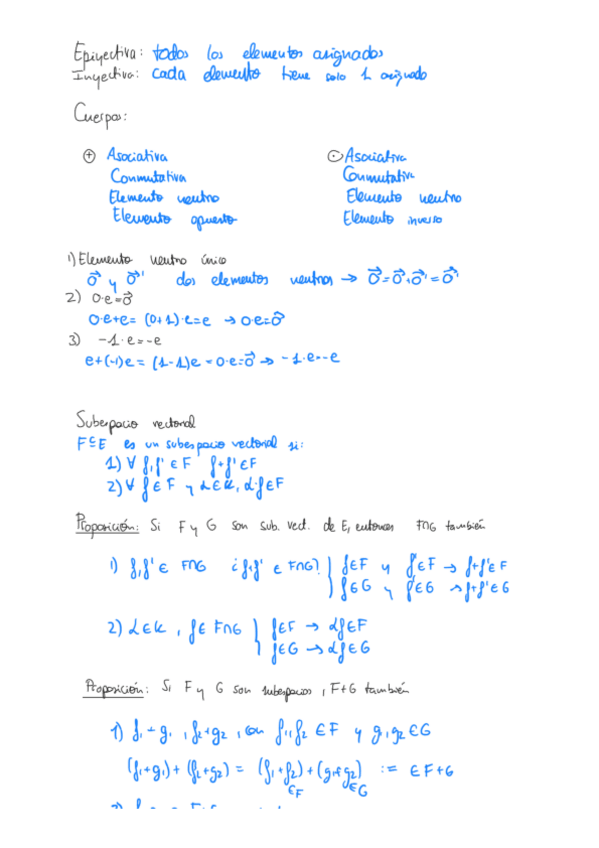 Epiyectiva: todos los elementos asignados
Inyectiva: cada elemento tiene solo 1 asignado
Cuerpos:
⊕ Asociativa
Conmutativa
Elemento neutro
Elemento opuesto
⊙ Asociativa
Conmutativa
Elemento neutro
Elemento inverso
1) Elemento neutro único
0⃗ y 0⃗' dos elementos neutros → 0⃗ = 0⃗ + 0⃗' = 0⃗'
2) 0·e = 0⃗
0·e+e = (0+1)·e = e → 0·e = 0⃗
3) -1·e = -e
e+(-1)e = (1-1)e = 0·e = 0⃗ → -1·e = -e
Subespacio vectorial
F⊆E es un subespacio vectorial si:
1) ∀ f,f' ∈ F f+f' ∈ F
2) ∀ f ∈ F y α ∈ K, α·f ∈ F
Proposición: Si F y G son sub. vect. de E, entonces F∩G también
1) f,f' ∈ F∩G ¿f+f' ∈ F∩G? } f∈F y f'∈F → f+f'∈F
f∈G y f'∈G → f+f'∈G
2) α∈K, f∈ F∩G } f∈F → αf∈F
f∈G → αf∈G
Proposición: Si F y G son subespacios, F+G también
1) f₁+g₁, f₂+g₂, con f₁,f₂ ∈ F y g₁,g₂ ∈ G
(f₁+g₁) + (f₂+g₂) = (f₁+f₂) + (g₁+g₂) := ∈ F+G
∈F ∈G